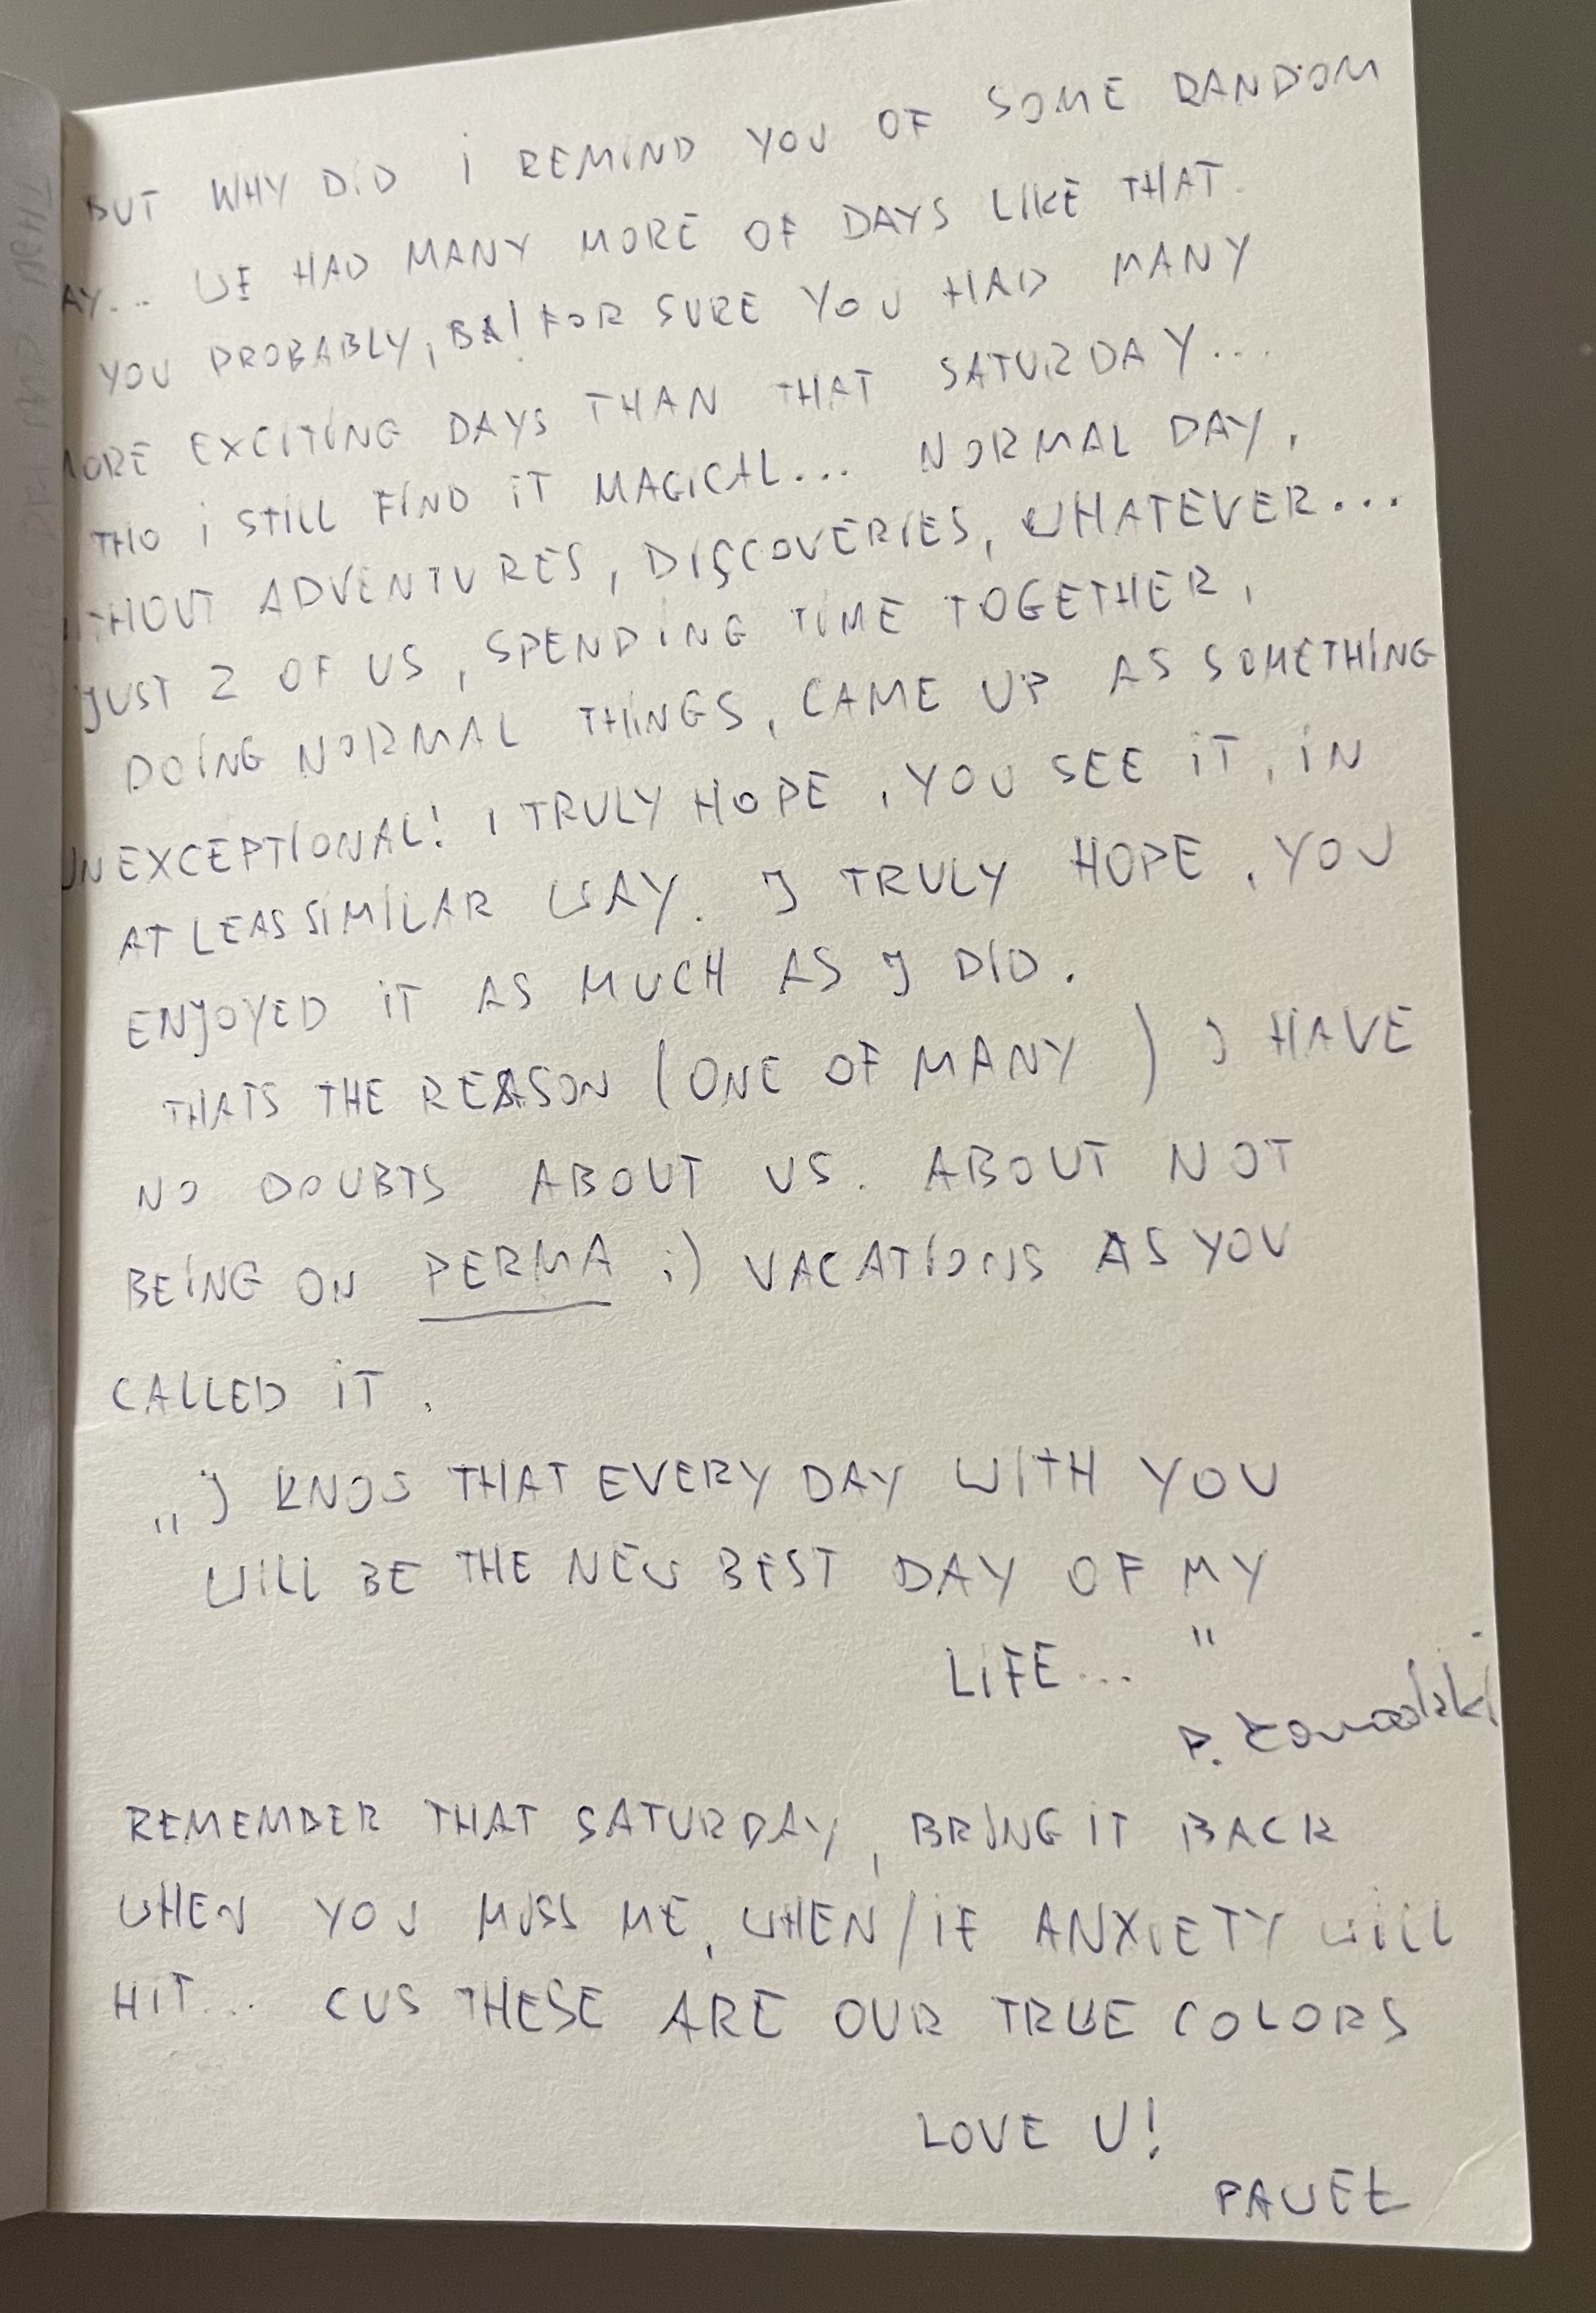 BUT WHY DID I REMIND YOU OF SOME RANDOM
AY... WE HAD MANY MORE OF DAYS LIKE THAT.
YOU PROBABLY, BA! FOR SURE YOU HAD MANY
MORE EXCITING DAYS THAN THAT SATURDAY...
THO I STILL FIND IT MAGICAL... NORMAL DAY,
ITHOUT ADVENTURES, DISCOVERIES, WHATEVER...
JUST 2 OF US, SPENDING TIME TOGETHER,
DOING NORMAL THINGS, CAME UP AS SOMETHING
UNEXCEPTIONAL! I TRULY HOPE, YOU SEE IT, IN
AT LEAS SIMILAR WAY. I TRULY HOPE, YOU
ENJOYED IT AS MUCH AS I DID.
THATS THE REASON (ONE OF MANY) I HAVE
NO DOUBTS ABOUT US. ABOUT NOT
BEING ON PERMA ;) VACATIONS AS YOU
CALLED IT.
„I KNOW THAT EVERY DAY WITH YOU
WILL BE THE NEW BEST DAY OF MY
LIFE... "
P.
REMEMBER THAT SATURDAY, BRING IT BACK
WHEN YOU MISS ME, WHEN/IF ANXIETY WILL
HIT... CUS THESE ARE OUR TRUE COLORS
LOVE U!
PAWEŁ